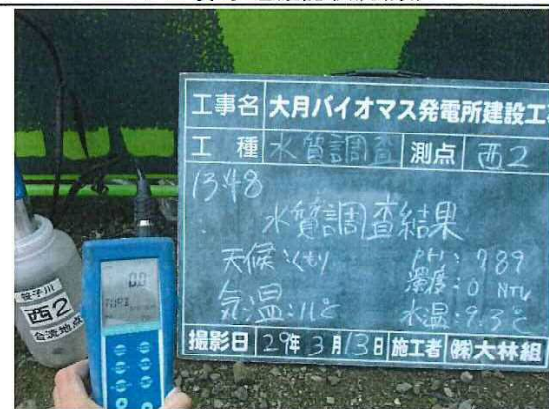 工事名 大月バイオマス発電所建設工
工種 水質調査 測点 西2
13:48
水質調査結果
天候:くもり pH: 7.89
濁度: 0 NTU
気温:11℃ 水温:9.3℃
撮影日 29年3月13日 施工者 ㈱大林組
笹子川
西2
合流地点
0.0